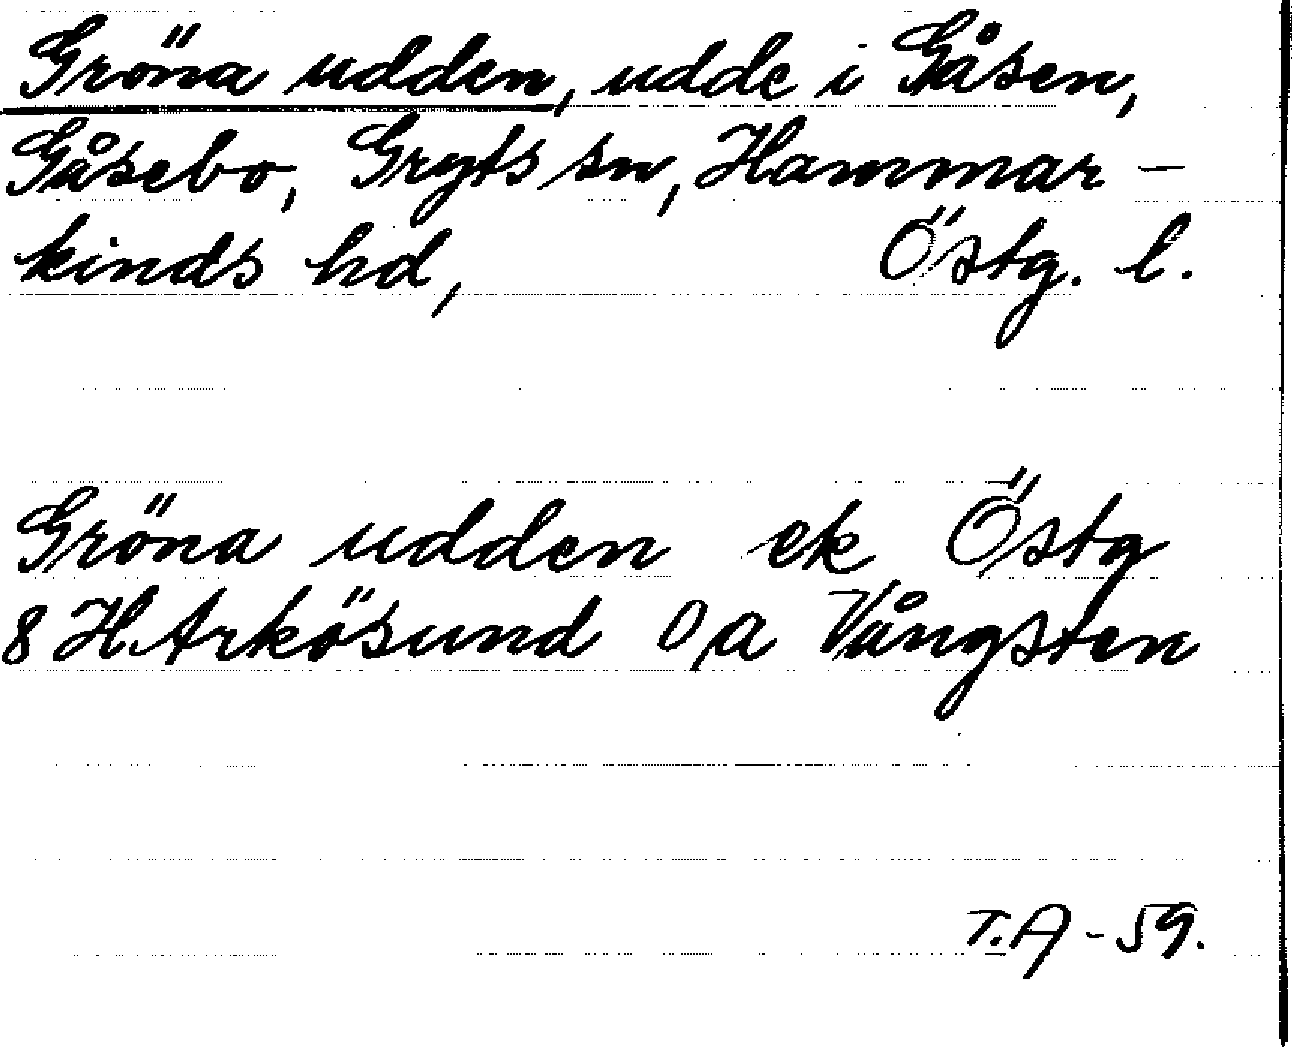 Gröna udden, udde i Gåsen,
Gåsebo, Gryts sn, Hammar-
kinds hd, Östg. l.
Gröna udden ek Östg
8 H Arkösund 0/a Vångsten
T.A-59.